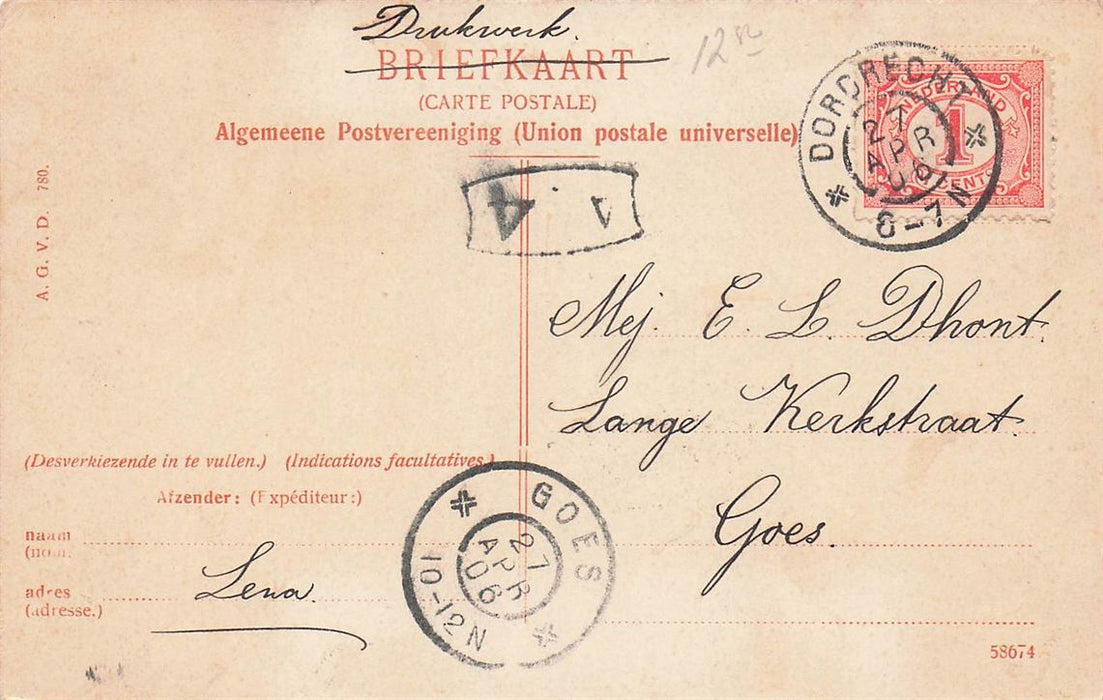 Drukwerk.
BRIEFKAART
12 50
(CARTE POSTALE)
Algemeene Postvereeniging (Union postale universelle)
DORDRECHT
27 APR 06
6-7N
NEDERLAND
1
CENTS
4
A. G. V. D. 780.
Mej. E. L. Dhont.
Lange Kerkstraat.
Goes.
(Desverkiezende in te vullen.) (Indications facultatives.)
Afzender: (Expéditeur:)
naam
(nom.
adres
(adresse.)
Lena.
GOES
27 APR 06
10-12N
58674